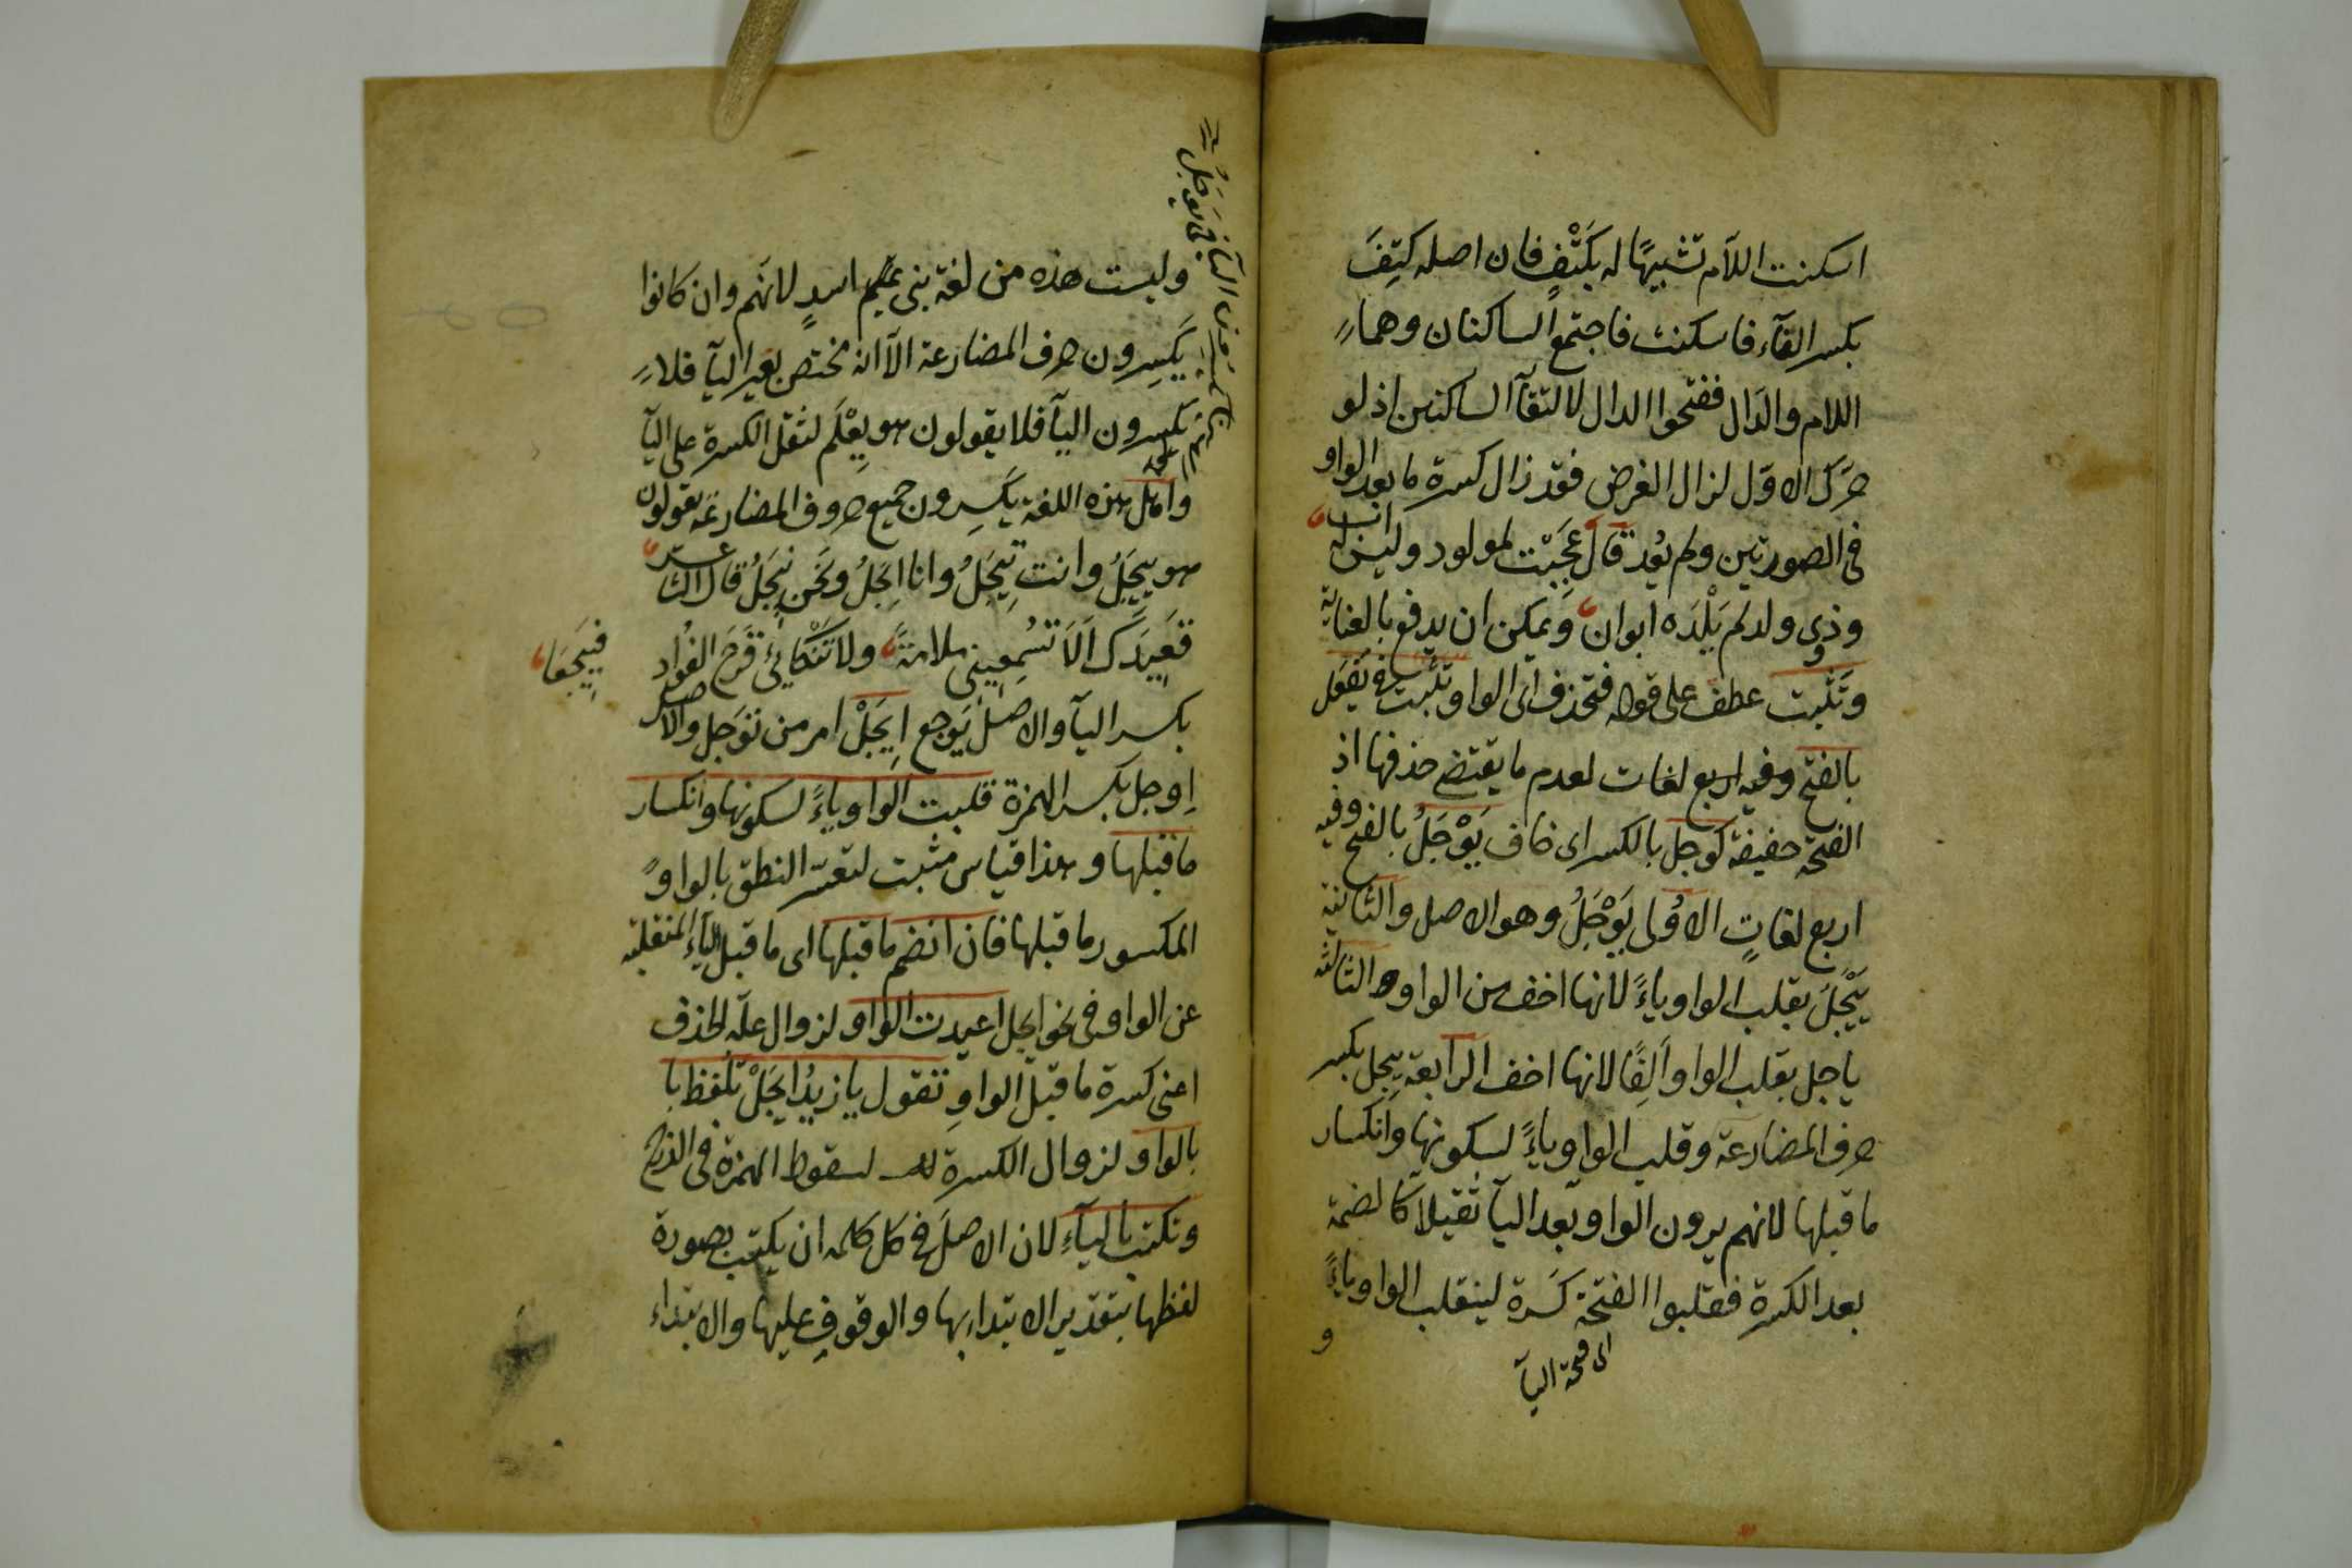 اسكنت اللآم تشبيهًا له بكَتْفٍ فان اصله كتِفَ
بكسر التآء فاسكنت فاجتمع الساكنان وهما
اللام والدَال ففتحوا الدال لالتقآ الساكنين اذ لو
حرّك الاوّل لزال الغرض فقد زال كسرة ما بعد الواو
فى الصورتين ولم يُعد قال عَجِبْت لمولود وليس له اب
وذى ولد لم يَلْدَه ابوان ويمكن ان يدفع بالعناية
وتَثبت عطف على قوله فتحذف اى الواو وتثبت فى يَفعَل
بالفتح وفيه اربع لغات لعدم ما يقتضى حذفها اذ
الفتحة خفيفة كوجل بالكسر اى خاف يَوْجَلُ بالفتح وفيه
اربع لغاتٍ الاوُلى يَوْجَلُ وهو الاصل والثانية
يَيْجَلَ بقلب الواو ياءً لانها اخف من الواو والثالثة
ياجل بقلب الواو ألِفًا لانها اخف الرابعة يِيجل بكسر
حرف المضارعة وقلب الواو ياءً لسكونها وانكسار
ما قبلها لانهم يرون الواو بعد اليآ ثقيلا كالضمة
بعد الكسرة فقلبوا الفتحة كَسرة لينقلب الواو ياءً
اى فتحة اليآ
و
فى يَوجَلُ
وليست هذه من لغة بنى اسدٍ لانّهم وان كانوا
يَكسِرون حرف المضارعة الآ انه مختص بغير اليآ فلا
يكسرون اليآ فلا يقولون هو يِعْلَم لثقل الكسرة على اليآ
واهل هذه اللغة يكسِرون جميع حروف المضارعة يقولون
هو يِيجَلُ وانت تِيجَلُ وانا اِيجَلُ ونحن نِيجَلُ قال الشاعر
قعِيدَك اَلّا تسُمِعِينى ملامةً ولا تَنْكائى قَرْحَ الفؤاد
فيِيجَعَا
بكسر اليآ والاصل يَوجع اِيجَلْ امر من توجل والاصل
اِوجل بكسر الهمزة قلبت الواو ياءً لسكونها وانكسار
ما قبلها وهذا قياس مثبت لتعسّر النطق بالواو
المكسور ما قبلها فان انضم ما قبلها اى ما قبل اليآء المنقلبة
عن الواو فى نحو ايجل اعيدت الواو لزوال علّة الحذف
اعنى كسرة ما قبل الواوِ تقول يا زيدُ ايجَلْ تلفظ با
بالواو لزوال الكسرة لسقوط الهمزة فى الدرج
وتكتب باليآءِ لان الاصلَ فى كل كلمه ان يكتب بصورة
لفظها بتقدير الابتداء بها والوقوفِ عليها والابتداء